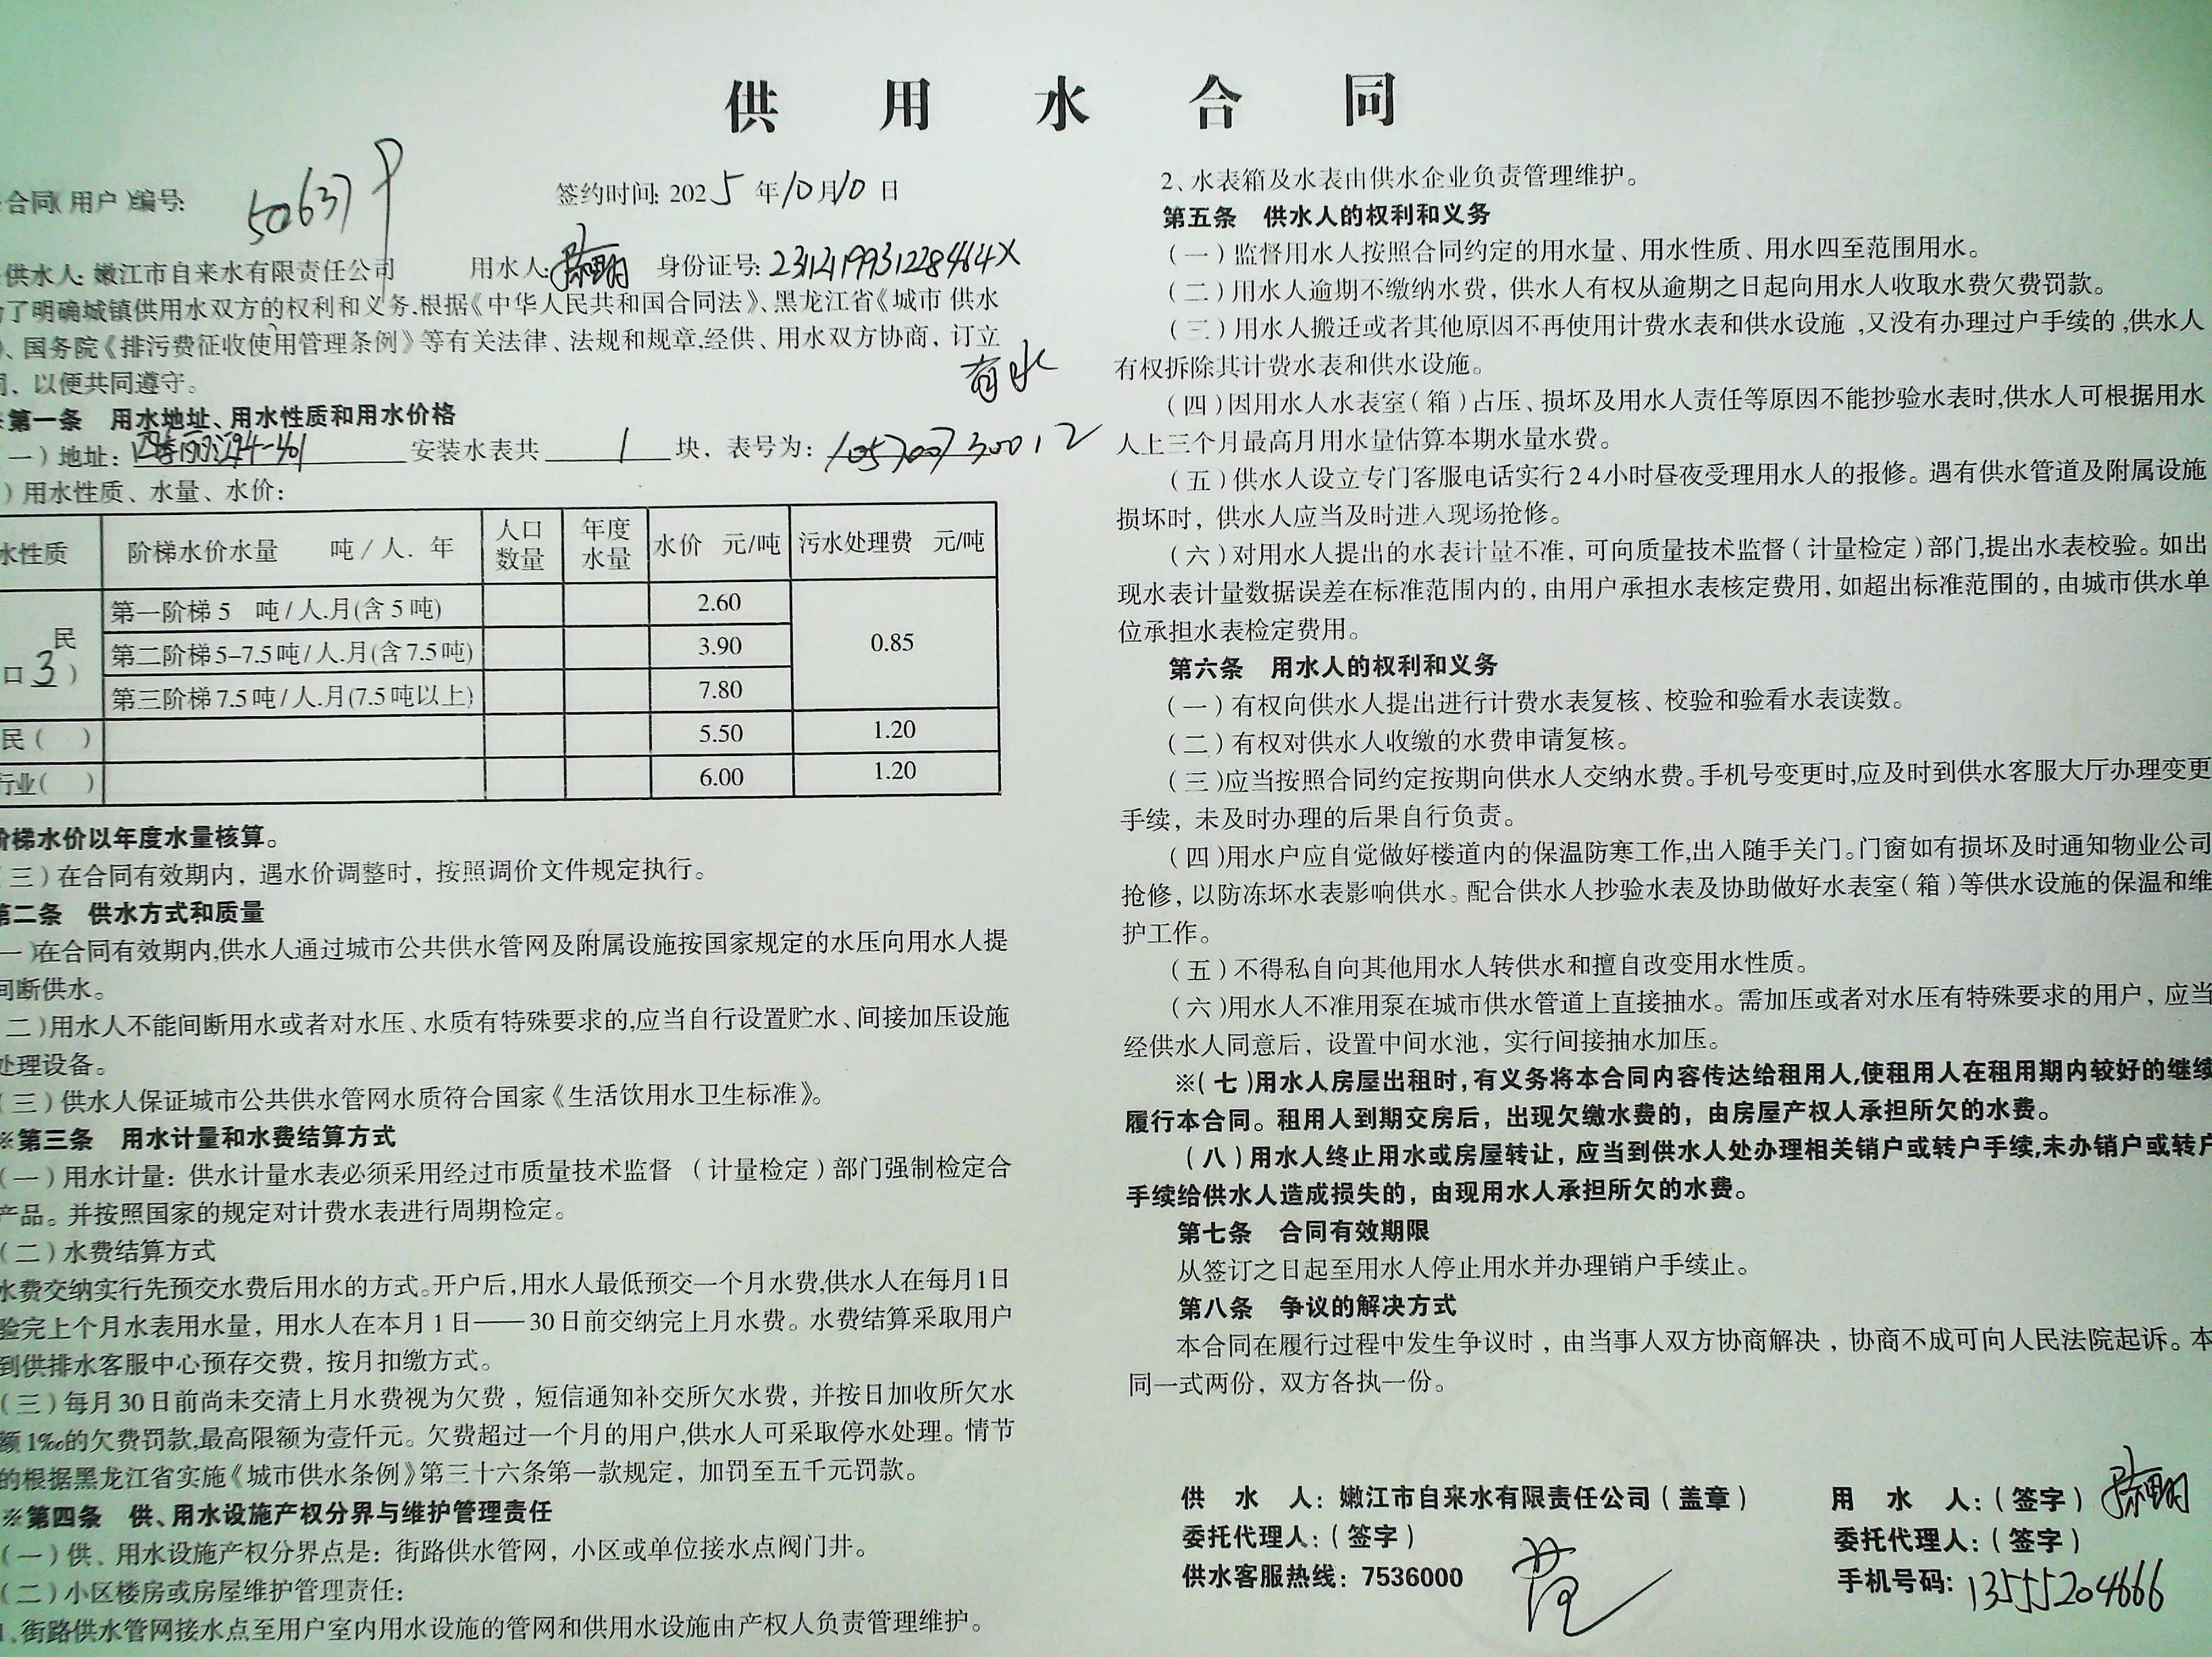 供用水合同
合同(用户)编号: 506379
签约时间: 2025年10月10日
供水人: 嫩江市自来水有限责任公司 用水人: 身份证号: 23112119931228464X
了明确城镇供用水双方的权利和义务.根据《中华人民共和国合同法》、黑龙江省《城市 供水
、国务院《排污费征收使用管理条例》等有关法律、法规和规章,经供、用水双方协商, 订立
, 以便共同遵守。
有水
※第一条 用水地址、用水性质和用水价格
一)地址: 4-401 安装水表共 1 块, 表号为: 105700730012
)用水性质、水量、水价:
水性质 阶梯水价水量 吨/人. 年 人口数量 年度水量 水价 元/吨 污水处理费 元/吨
民
口 3 )
第一阶梯5 吨/人.月(含5吨) 2.60 0.85
第二阶梯5-7.5吨/人.月(含7.5吨) 3.90
第三阶梯7.5吨/人.月(7.5吨以上) 7.80
民( ) 5.50 1.20
行业( ) 6.00 1.20
阶梯水价以年度水量核算。
(三)在合同有效期内, 遇水价调整时, 按照调价文件规定执行。
第二条 供水方式和质量
一)在合同有效期内,供水人通过城市公共供水管网及附属设施按国家规定的水压向用水人提
间断供水。
二)用水人不能间断用水或者对水压、水质有特殊要求的,应当自行设置贮水、间接加压设施
处理设备。
(三)供水人保证城市公共供水管网水质符合国家《生活饮用水卫生标准》。
※第三条 用水计量和水费结算方式
(一)用水计量: 供水计量水表必须采用经过市质量技术监督 (计量检定)部门强制检定合
产品。并按照国家的规定对计费水表进行周期检定。
(二)水费结算方式
水费交纳实行先预交水费后用水的方式。开户后,用水人最低预交一个月水费,供水人在每月1日
验完上个月水表用水量, 用水人在本月1日——30日前交纳完上月水费。水费结算采取用户
到供排水客服中心预存交费, 按月扣缴方式。
(三)每月30日前尚未交清上月水费视为欠费, 短信通知补交所欠水费, 并按日加收所欠水
额1‰的欠费罚款,最高限额为壹仟元。欠费超过一个月的用户,供水人可采取停水处理。情节
的根据黑龙江省实施《城市供水条例》第三十六条第一款规定, 加罚至五千元罚款。
※第四条 供、用水设施产权分界与维护管理责任
(一)供、用水设施产权分界点是: 街路供水管网, 小区或单位接水点阀门井。
(二)小区楼房或房屋维护管理责任:
1、街路供水管网接水点至用户室内用水设施的管网和供用水设施由产权人负责管理维护。
2、水表箱及水表由供水企业负责管理维护。
第五条 供水人的权利和义务
(一)监督用水人按照合同约定的用水量、用水性质、用水四至范围用水。
(二)用水人逾期不缴纳水费, 供水人有权从逾期之日起向用水人收取水费欠费罚款。
(三)用水人搬迁或者其他原因不再使用计费水表和供水设施 ,又没有办理过户手续的,供水人
有权拆除其计费水表和供水设施。
(四)因用水人水表室(箱)占压、损坏及用水人责任等原因不能抄验水表时,供水人可根据用水
人上三个月最高月用水量估算本期水量水费。
(五)供水人设立专门客服电话实行24小时昼夜受理用水人的报修。遇有供水管道及附属设施
损坏时, 供水人应当及时进入现场抢修。
(六)对用水人提出的水表计量不准, 可向质量技术监督(计量检定)部门,提出水表校验。如出
现水表计量数据误差在标准范围内的, 由用户承担水表核定费用, 如超出标准范围的, 由城市供水单
位承担水表检定费用。
第六条 用水人的权利和义务
(一)有权向供水人提出进行计费水表复核、校验和验看水表读数。
(二)有权对供水人收缴的水费申请复核。
(三)应当按照合同约定按期向供水人交纳水费。手机号变更时,应及时到供水客服大厅办理变更
手续, 未及时办理的后果自行负责。
(四)用水户应自觉做好楼道内的保温防寒工作,出入随手关门。门窗如有损坏及时通知物业公司
抢修, 以防冻坏水表影响供水。配合供水人抄验水表及协助做好水表室(箱)等供水设施的保温和维
护工作。
(五)不得私自向其他用水人转供水和擅自改变用水性质。
(六)用水人不准用泵在城市供水管道上直接抽水。需加压或者对水压有特殊要求的用户, 应当
经供水人同意后, 设置中间水池, 实行间接抽水加压。
※(七)用水人房屋出租时,有义务将本合同内容传达给租用人,使租用人在租用期内较好的继续
履行本合同。租用人到期交房后, 出现欠缴水费的, 由房屋产权人承担所欠的水费。
(八)用水人终止用水或房屋转让, 应当到供水人处办理相关销户或转户手续,未办销户或转户
手续给供水人造成损失的, 由现用水人承担所欠的水费。
第七条 合同有效期限
从签订之日起至用水人停止用水并办理销户手续止。
第八条 争议的解决方式
本合同在履行过程中发生争议时, 由当事人双方协商解决, 协商不成可向人民法院起诉。本
同一式两份, 双方各执一份。
供 水 人: 嫩江市自来水有限责任公司(盖章) 用 水 人:(签字)
委托代理人:(签字) 委托代理人:(签字)
供水客服热线: 7536000 手机号码: 13555204666